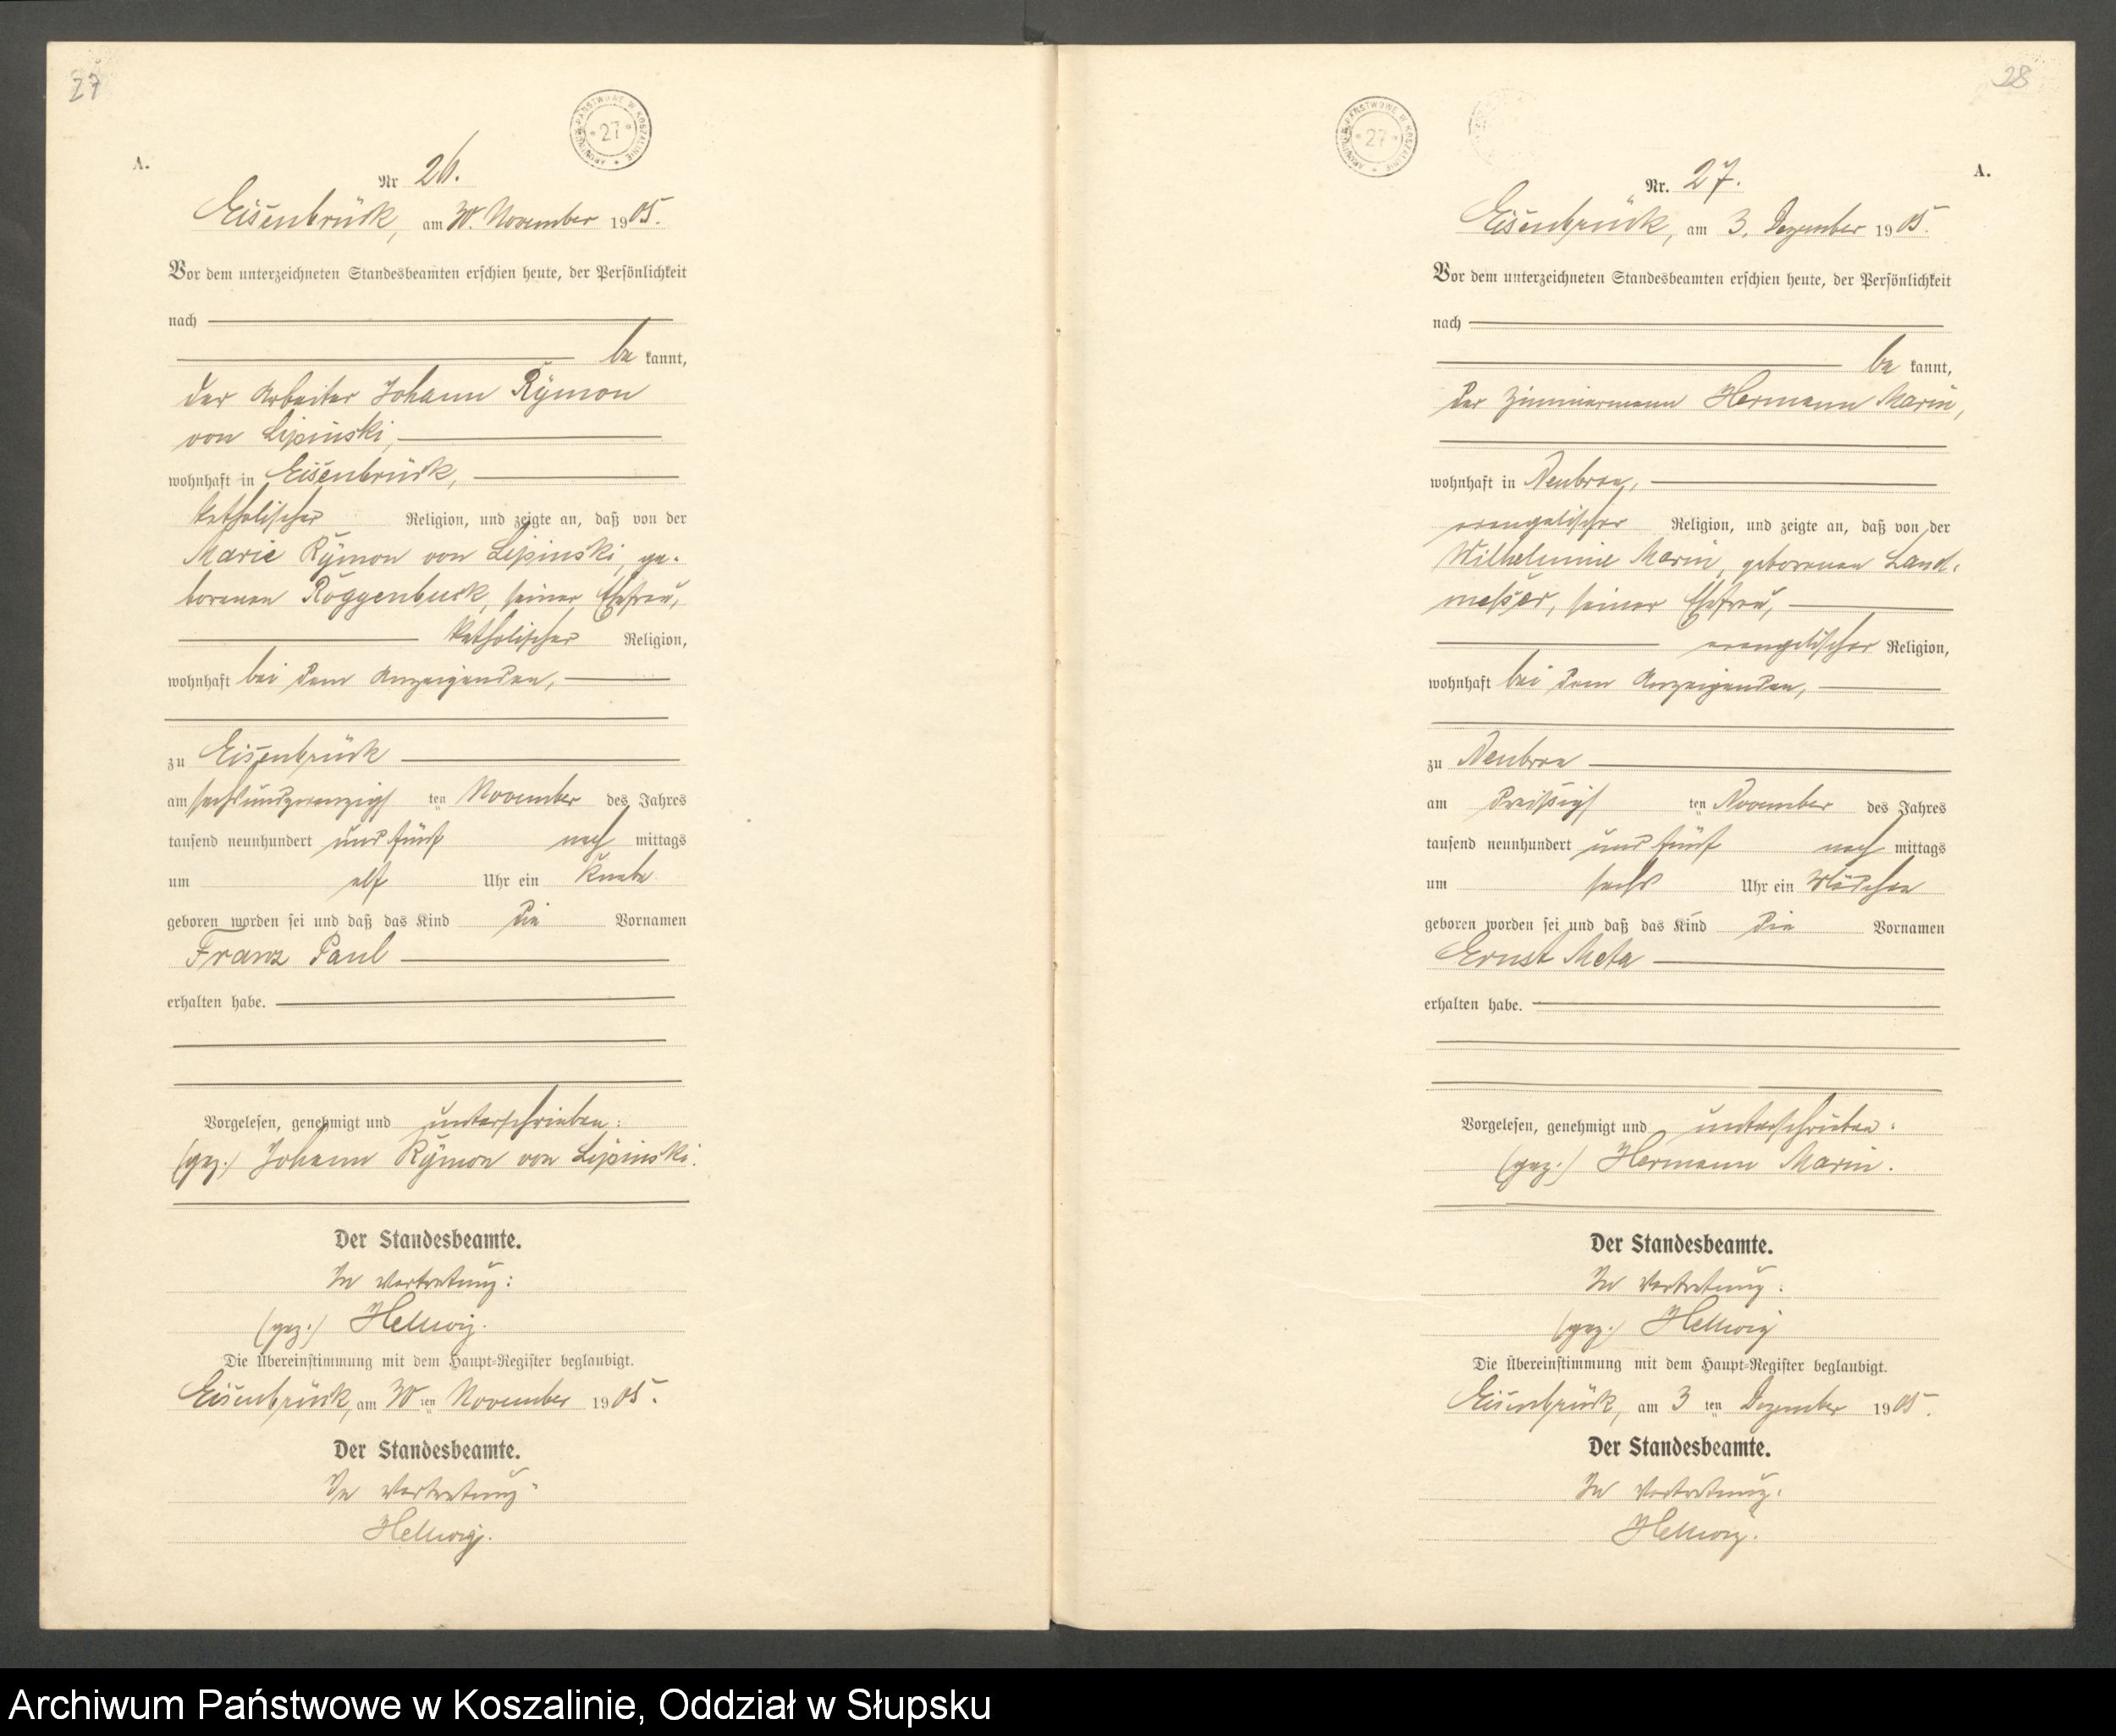 27
ARCHIWUM PAŃSTWOWE W KOSZALINIE * 27 *
A.
Nr 26.
Eisenbrück, am 30. November 1905.
Vor dem unterzeichneten Standesbeamten erschien heute, der Persönlichkeit
nach
be kannt,
der Arbeiter Johann Rymon
von Lipinski,
wohnhaft in Eisenbrück,
katholischer Religion, und zeigte an, daß von der
Marie Rymon von Lipinski, ge-
borenen Roggenbuck, seiner Ehefrau,
katholischer Religion,
wohnhaft bei dem Anzeigenden,
zu Eisenbrück
am sechsundzwanzigs ten November des Jahres
tausend neunhundert und fünf nach mittags
um elf Uhr ein Knabe
geboren worden sei und daß das Kind die Vornamen
Franz Paul
erhalten habe.
Vorgelesen, genehmigt und unterschrieben:
(gez.) Johann Rymon von Lipinski.
Der Standesbeamte.
In Vertretung:
(gez.) Hellwig.
Die Übereinstimmung mit dem Haupt-Register beglaubigt.
Eisenbrück, am 30 ten November 1905.
Der Standesbeamte.
In Vertretung:
Hellwig.
28
ARCHIWUM PAŃSTWOWE W KOSZALINIE * 27 *
A.
Nr. 27.
Eisenbrück, am 3. Dezember 1905.
Vor dem unterzeichneten Standesbeamten erschien heute, der Persönlichkeit
nach
be kannt,
der Zimmermann Hermann Marin,
wohnhaft in Neubraa,
evangelischer Religion, und zeigte an, daß von der
Wilhelmine Marin, geborenen Land-
messer, seiner Ehefrau,
evangelischer Religion,
wohnhaft bei dem Anzeigenden,
zu Neubraa
am dreißigs ten November des Jahres
tausend neunhundert und fünf nach mittags
um sechs Uhr ein Mädchen
geboren worden sei und daß das Kind die Vornamen
Ernst Meta
erhalten habe.
Vorgelesen, genehmigt und unterschrieben:
(gez.) Hermann Marin.
Der Standesbeamte.
In Vertretung:
(gez.) Hellwig
Die Übereinstimmung mit dem Haupt-Register beglaubigt.
Eisenbrück, am 3 ten Dezember 1905.
Der Standesbeamte.
In Vertretung:
Hellwig.
Archiwum Państwowe w Koszalinie, Oddział w Słupsku